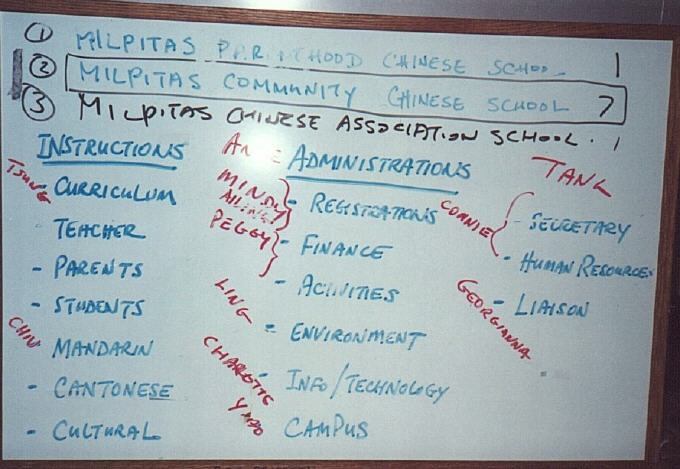 ① MILPITAS CHINESE SCHOOL 1
② MILPITAS COMMUNITY CHINESE SCHOOL 7
③ MILPITAS CHINESE ASSOCIATION SCHOOL. 1
INSTRUCTIONS
TSUNG
- CURRICULUM
TEACHER
- PARENTS
- STUDENTS
CHIU
MANDARIN
- CANTONESE
- CULTURAL
ADMINISTRATIONS
MINDY
AILING
PEGGY
- REGISTRATIONS
- FINANCE
- ACTIVITIES
LING
- ENVIRONMENT
CHARLOTTE
- INFO/TECHNOLOGY
CAMPUS
TANG
CONNIE
- SECRETARY
- HUMAN RESOURCES
GEORGIANNA
- LIAISON